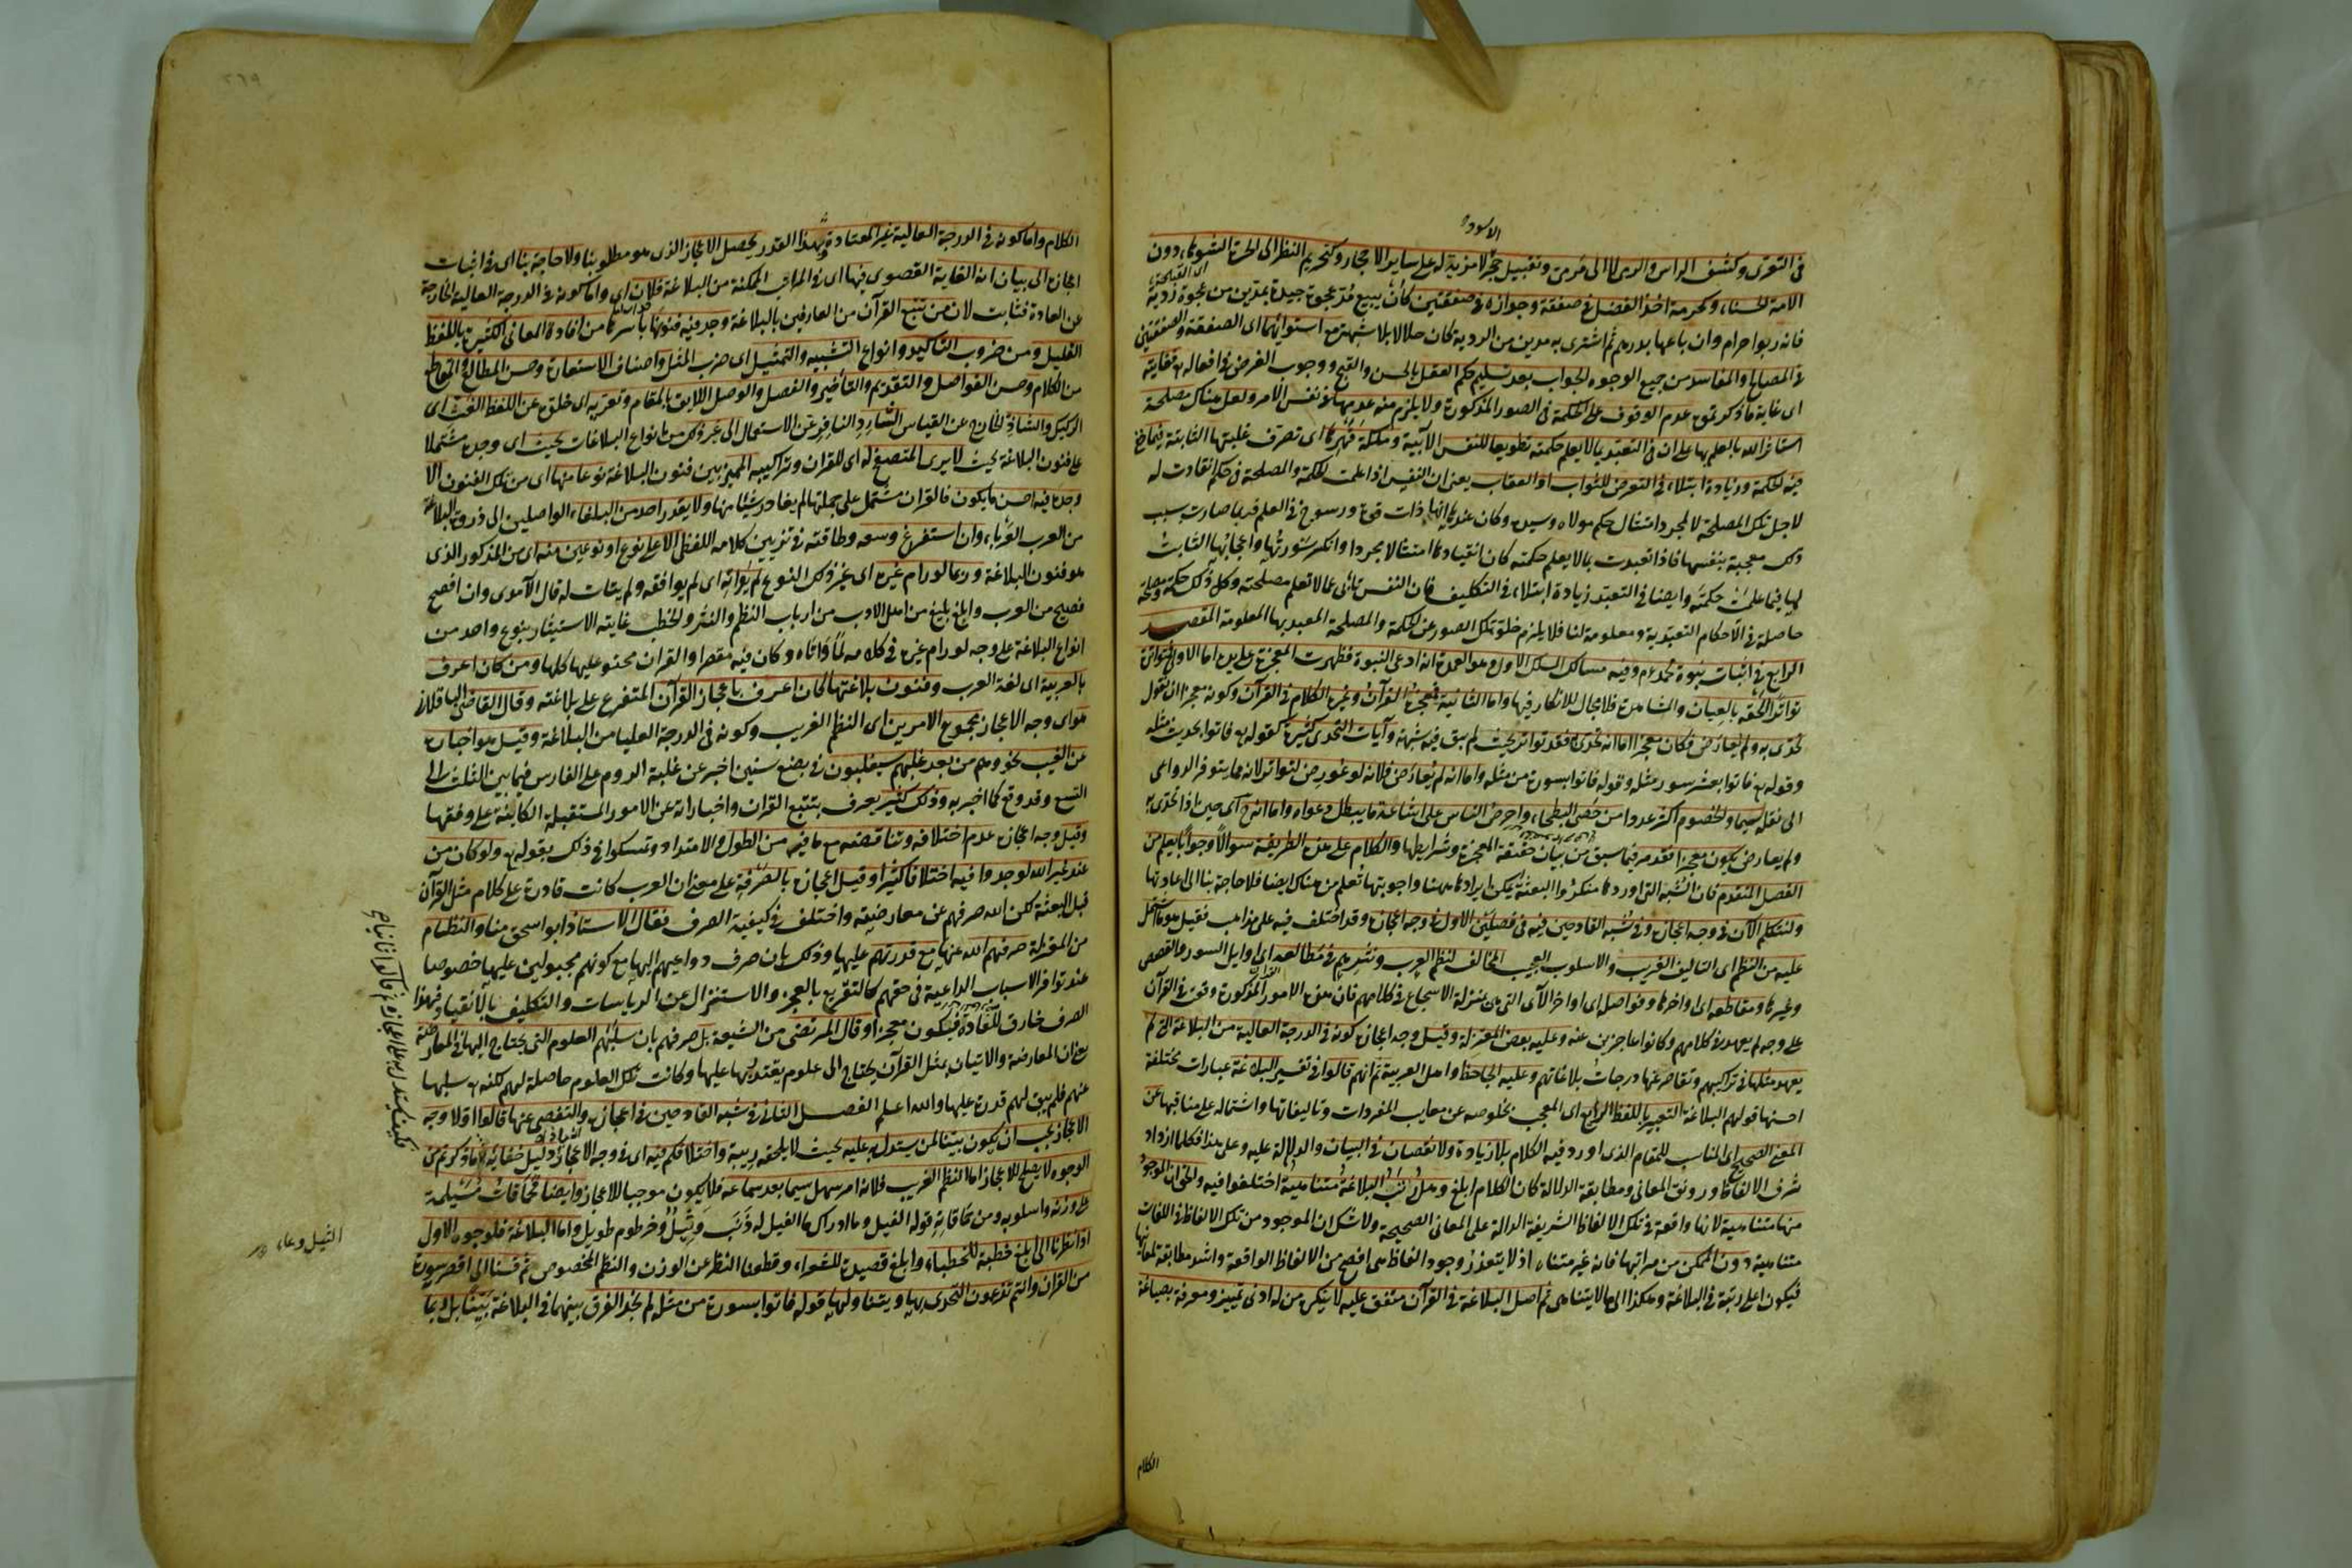 الاسود
فى التعرى وكشف الراس والرمى لا الى مرمى وتقبيل حجر لا مزية له على ساير الاحجار وكتحريم النظر الى الحرة الشوهاء دون
اى القبيحة
الامة الحسناء وكحرمة اخذ الفضل فى صفقة وجوازه فى صفقتين كان يبيع مد عجوة جيدة بمدين من عجوة ردية
فانه ربوا حرام وان باعها بدرهم ثم اشترى به مدين من الردية كان حلالا بلا شبهة مع استوائهما اى الصفقة والصفقتين
فى المصالح والمفاسد من جميع الوجوه الجواب بعد تسليم حكم العقل بالحسن والقبح ووجوب الغرض فى افعاله تع فغايته
اى غاية ما ذكرتموه عدم الوقوف على الحكمة فى الصور المذكورة ولا يلزم منه عدمها فى نفس الامر ولعل هناك مصلحة
استاثر الله بالعلم بها على ان فى التعبد بما لا يعلم حكمته تطويعا للنفس الابية وملكة قهرها اى تصرف غلبتها الثابتة فيما خفى
فيه الحكمة وزيادة ابتلاء فى التعرض للثواب او العقاب يعنى ان النفس اذا علمت الحكمة والمصلحة فى حكم انقادت له
لاجل تلك المصلحة لا لمجرد امتثال حكم مولاه وسيده وكان عندها انها ذات قوة ورسوخ فى العلم فربما صارت بسبب
ذلك معجبة بنفسها فاذا تعبدت بما لا يعلم حكمته كان انقيادها امتثالا مجردا وانكسر سورتها واعجابها الثابت
لها فيما علمت حكمته وايضا فى التعبد زيادة ابتلاء فى التكليف فان النفس تابى عما لا تعلم مصلحته وكل ذلك حكمة ومصلحة
حاصلة فى الاحكام التعبدية ومعلومة لنا فلا يلزم خلو تلك الصور عن الحكمة والمصلحة المعتد بها المعلومة المقصد
الرابع فى اثبات نبوة محمد عم وفيه مسالك المسلك الاول وهو العمدة انه ادعى النبوة فظهرت المعجزة على يده اما الاولى فتواتر
تواترا الحقه بالعيان والمشاهدة فلا مجال للانكار فيها واما الثانية فمعجزته القرآن وغيره الكلام فى القرآن وكونه معجزا ان نقول
تحدى به ولم يعارض فكان معجزا اما انه تحدى به فقد تواتر بحيث لم يبق فيه شبهة وآيات التحدى كثيرة كقوله تع فاتوا بحديث مثله
وقوله تع فاتوا بعشر سور مثله وقوله فاتوا بسورة من مثله واما انه لم يعارض فلانه لو عورض لتواتر لانه مما يتوفر الدواعى
الى نقله سيما والخصوم اكثر عددا من حصى البطحاء واحرص الناس على اشاعة ما يبطل دعواه واما انه ح اى حين اذا تحدى به
ولم يعارض يكون معجزا فقد مر فيما سبق من بيان حقيقة المعجزة وشرايطها والكلام على هذه الطريقة سوالا وجوابا يعلم من
الفصل المتقدم فان الشبه التى اوردها منكروا البعثة يمكن ايرادها ههنا واجوبتها تعلم من هناك ايضا فلا حاجة بنا الى اعادتها
ولنتكلم الآن فى وجه اعجازه وفى شبه القادحين فيه فى فصلين الاول فى وجه اعجازه وقد اختلف فيه على مذاهب فقيل هو ما اشتمل
عليه من النظم اى التاليف الغريب والاسلوب العجيب المخالف لنظم العرب ونثرهم فى مطالعه اى اوايل السور والقصص
وغيرها ومقاطعه اى اواخرها وفواصله اى اواخر الآى التى هى بمنزلة الاسجاع فى كلامهم فان هذه الامور المذكورة وقع فى القرآن
على وجه لم يعهد فى كلامهم وكانوا عاجزين عنه وعليه بعض المعتزلة وقيل وجه اعجازه كونه فى الدرجة العالية من البلاغة التى لم
يعهد مثلها فى تراكيبهم وتقاصر عنها درجات بلاغاتهم وعليه الجاحظ واهل العربية ثم انهم قالوا فى تفسير البلاغة عبارات مختلفة
احسنها قولهم البلاغة التعبير باللفظ الرايع اى المعجب بخلوصه عن معايب المفردات وتاليفاتها واشتماله على مناقبها عن
المعنى الصحيح اى المناسب للمقام الذى اورد فيه الكلام بلا زيادة ولا نقصان فى البيان والدلالة عليه وعلى هذا فكلما ازداد
شرف الالفاظ ورونق المعانى ومطابقة الدلالة كان الكلام ابلغ وهل رتب البلاغة متناهية اختلفوا فيه والحق ان الموجود
منها متناهية لانها واقعة فى تلك الالفاظ الشريفة الدالة على المعانى الصحيحة ولا شك ان الموجود من تلك الالفاظ فى اللغات
متناهية دون الممكن من مراتبها فانه غير متناه اذ لا يتعذر وجود الفاظ هى افصح من الالفاظ الواقعة واشد مطابقة لمعانيها
فيكون اعلى رتبة فى البلاغة وهكذا الى ما لا يتناهى ثم اصل البلاغة فى القرآن متفق عليه لا ينكره من له ادنى تمييز ومعرفة بصياغة
الكلام
٢٦٩
الكلام واما كونه فى الدرجة العالية غير المعتادة وبهذا القدر يحصل الاعجاز الذى هو مطلوبنا ولا حاجة بنا اى فى اثبات
اعجازه الى بيان انه الغاية القصوى فيها اى فى المراتب الممكنة من البلاغة فلان اى واما كونه فى الدرجة العالية الخارجة
عن العادة فثابت لان من تتبع القرآن من العارفين بالبلاغة وجد فيه فنونها باسرها من افادة المعانى الكثيرة باللفظ
القليل ومن ضروب التاكيد وانواع التشبيه والتمثيل اى ضرب المثل واصناف الاستعارة وحسن المطالع والمقاطع
من الكلام وحسن الفواصل والتقديم والتأخير والفصل والوصل اللايق بالمقام وتعريه اى خلوه عن اللفظ الغث اى
الركيك والشاذ الخارج عن القياس الشارد النافر عن الاستعمال الى غير ذلك من انواع البلاغات بحيث اى وجده مشتملا
على فنون البلاغة بحيث لا يرى المتصفح له اى للقران وتراكيبه المميز بين فنون البلاغة نوعا منها اى من تلك الفنون الا
وجده فيه احسن ما يكون فالقران مشتمل على جملتها لم يغادر شيئا منها ولا يقدر احد من البلغاء الواصلين الى ذروة البلاغة
من العرب العرباء وان استفرغ وسعه وطاقته فى تزيين كلامه اللفظى الا على نوع او نوعين منه اى من المذكور الذى
هو فنون البلاغة وربما لو رام غيره اى غير ذلك النوع لم يواته اى لم يوافقه ولم يتات له قال الآمدى وان افصح
فصيح من العرب وابلغ بليغ من اهل الادب من ارباب النظم والنثر والخطب غايته الاستيثار بنوع واحد من
انواع البلاغة على وجه لو رام غيره فى كلامه لما واتاه وكان فيه مقصرا والقران محتو عليها كلها ومن كان اعرف
بالعربية اى لغة العرب وفنون بلاغتها كان اعرف باعجاز القرآن المتفرع على بلاغته وقال القاضى الباقلانى
هو اى وجه الاعجاز مجموع الامرين اى النظم الغريب وكونه فى الدرجة العليا من البلاغة وقيل هو اخباره
عن الغيب نحو وهم من بعد غلبهم سيغلبون فى بضع سنين اخبر عن غلبة الروم على الفارس فيما بين الثلث الى
التسع وقد وقع كما اخبر به وذلك كثير يعرف بتتبع القران واخباراته عن الامور المستقبلة الكاينة على وفقها
وقيل وجه اعجازه عدم اختلافه وتناقضه مع ما فيه من الطول والامتداد وتمسكوا فى ذلك بقوله تع ولو كان من
عند غير الله لوجدوا فيه اختلافا كثيرا وقيل اعجازه بالصرفة على معنى ان العرب كانت قادرة على كلام مثل القرآن
قبل البعثة لكن الله صرفهم عن معارضته واختلف فى كيفية الصرف فقال الاستاذ ابو اسحق منا والنظام
من المعتزلة صرفهم الله عنها مع قدرتهم عليها وذلك بان صرف دواعيهم اليها مع كونهم مجبولين عليها خصوصا
عند توافر الاسباب الداعية فى حقهم كالتقريع بالعجز والاستنزال عن الرياسات والتكليف بالانقياد فهذا
الصرف خارق للعادة فيكون معجزا وقال المرتضى من الشيعة بل صرفهم بان سلبهم العلوم التى يحتاج اليها فى المعارضة
يعنى ان المعارضة والاتيان بمثل القرآن يحتاج الى علوم يقتدر بها عليها وكانت تلك العلوم حاصلة لهم لكنه تع سلبها
عنهم فلم يبق لهم قدرة عليها والله اعلم الفصل الثانى فى شبه القادحين فى اعجازه والتفصى عنها قالوا اولا وجه
الاعجاز يجب ان يكون بينا لمن يستدل به عليه بحيث لا يلحقه ريبة واختلافكم فيه اى فى وجه الاعجاز دليل خفائه ما ذكرتم من
الوجوه لا يصلح للاعجاز اما النظم الغريب فلانه امر سهل سيما بعد سماعه فلا يكون موجبا للاعجاز وايضا فحماقات مسيلمة
على وزنه واسلوبه ومن حماقاته قوله الفيل وما ادراك ما الفيل له ذنب وثيل وخرطوم طويل واما البلاغة فلوجوه الاول
اذا نظرنا الى ابلغ خطبة للخطباء وابلغ قصيدة للشعراء وقطعنا النظر عن الوزن والنظم المخصوص ثم قسنا الى اقصر سورة
من القران وانتم تزعمون التحدى بها ويتناولها قوله فاتوا بسورة من مثله لم نجد الفرق بينهما فى البلاغة بينا بل ربما
فكيف يستدل به على اعجازه ثم قالوا ثانيا
الثيل وعاء